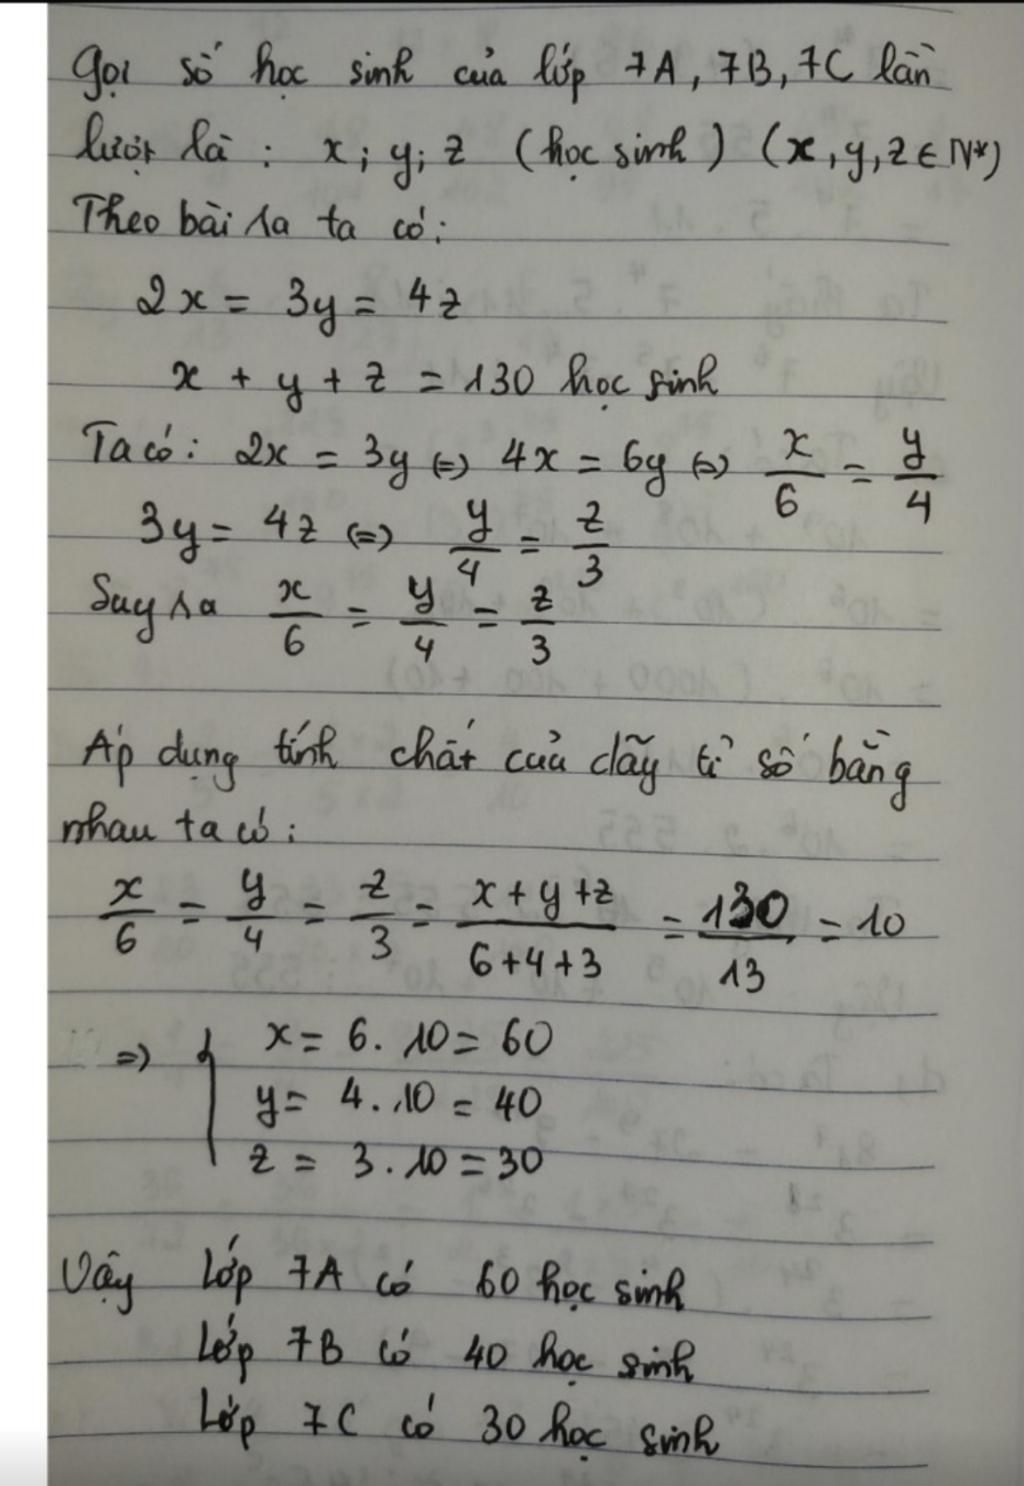 Gọi số học sinh của lớp 7A, 7B, 7C lần
lượt là : x; y; z (học sinh) (x, y, z ∈ N*)
Theo bài ra ta có:
2x = 3y = 4z
x + y + z = 130 học sinh
Ta có: 2x = 3y (=) 4x = 6y (=) x/6 = y/4
3y = 4z (=) y/4 = z/3
Suy ra x/6 = y/4 = z/3
Áp dụng tính chất của dãy tỉ số bằng
nhau ta có:
x/6 = y/4 = z/3 = (x+y+z)/(6+4+3) = 130/13 = 10
=) { x = 6 . 10 = 60
y = 4 . 10 = 40
z = 3 . 10 = 30
Vậy Lớp 7A có 60 học sinh
Lớp 7B có 40 học sinh
Lớp 7C có 30 học sinh